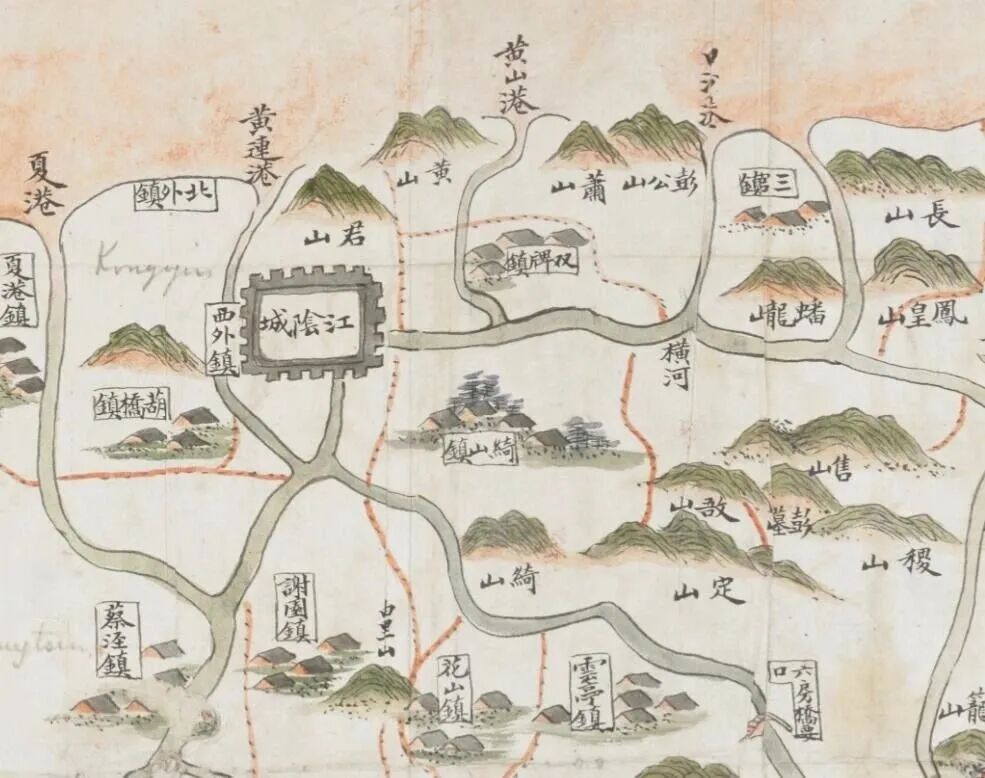 黄山港
黃連港
夏港
北外鎮
黄山
蕭山
彭公山
三官鎮
長山
君山
夏港鎮
双牌鎮
蟠龍山
鳳皇山
西外鎮
江陰城
橫河
葫橋鎮
綺山鎮
Kongyin
售山
敔山
彭墓
綺山
定山
稷山
謝園鎮
蔡涇鎮
白里山
花山鎮
雲亭鎮
六房橋要口